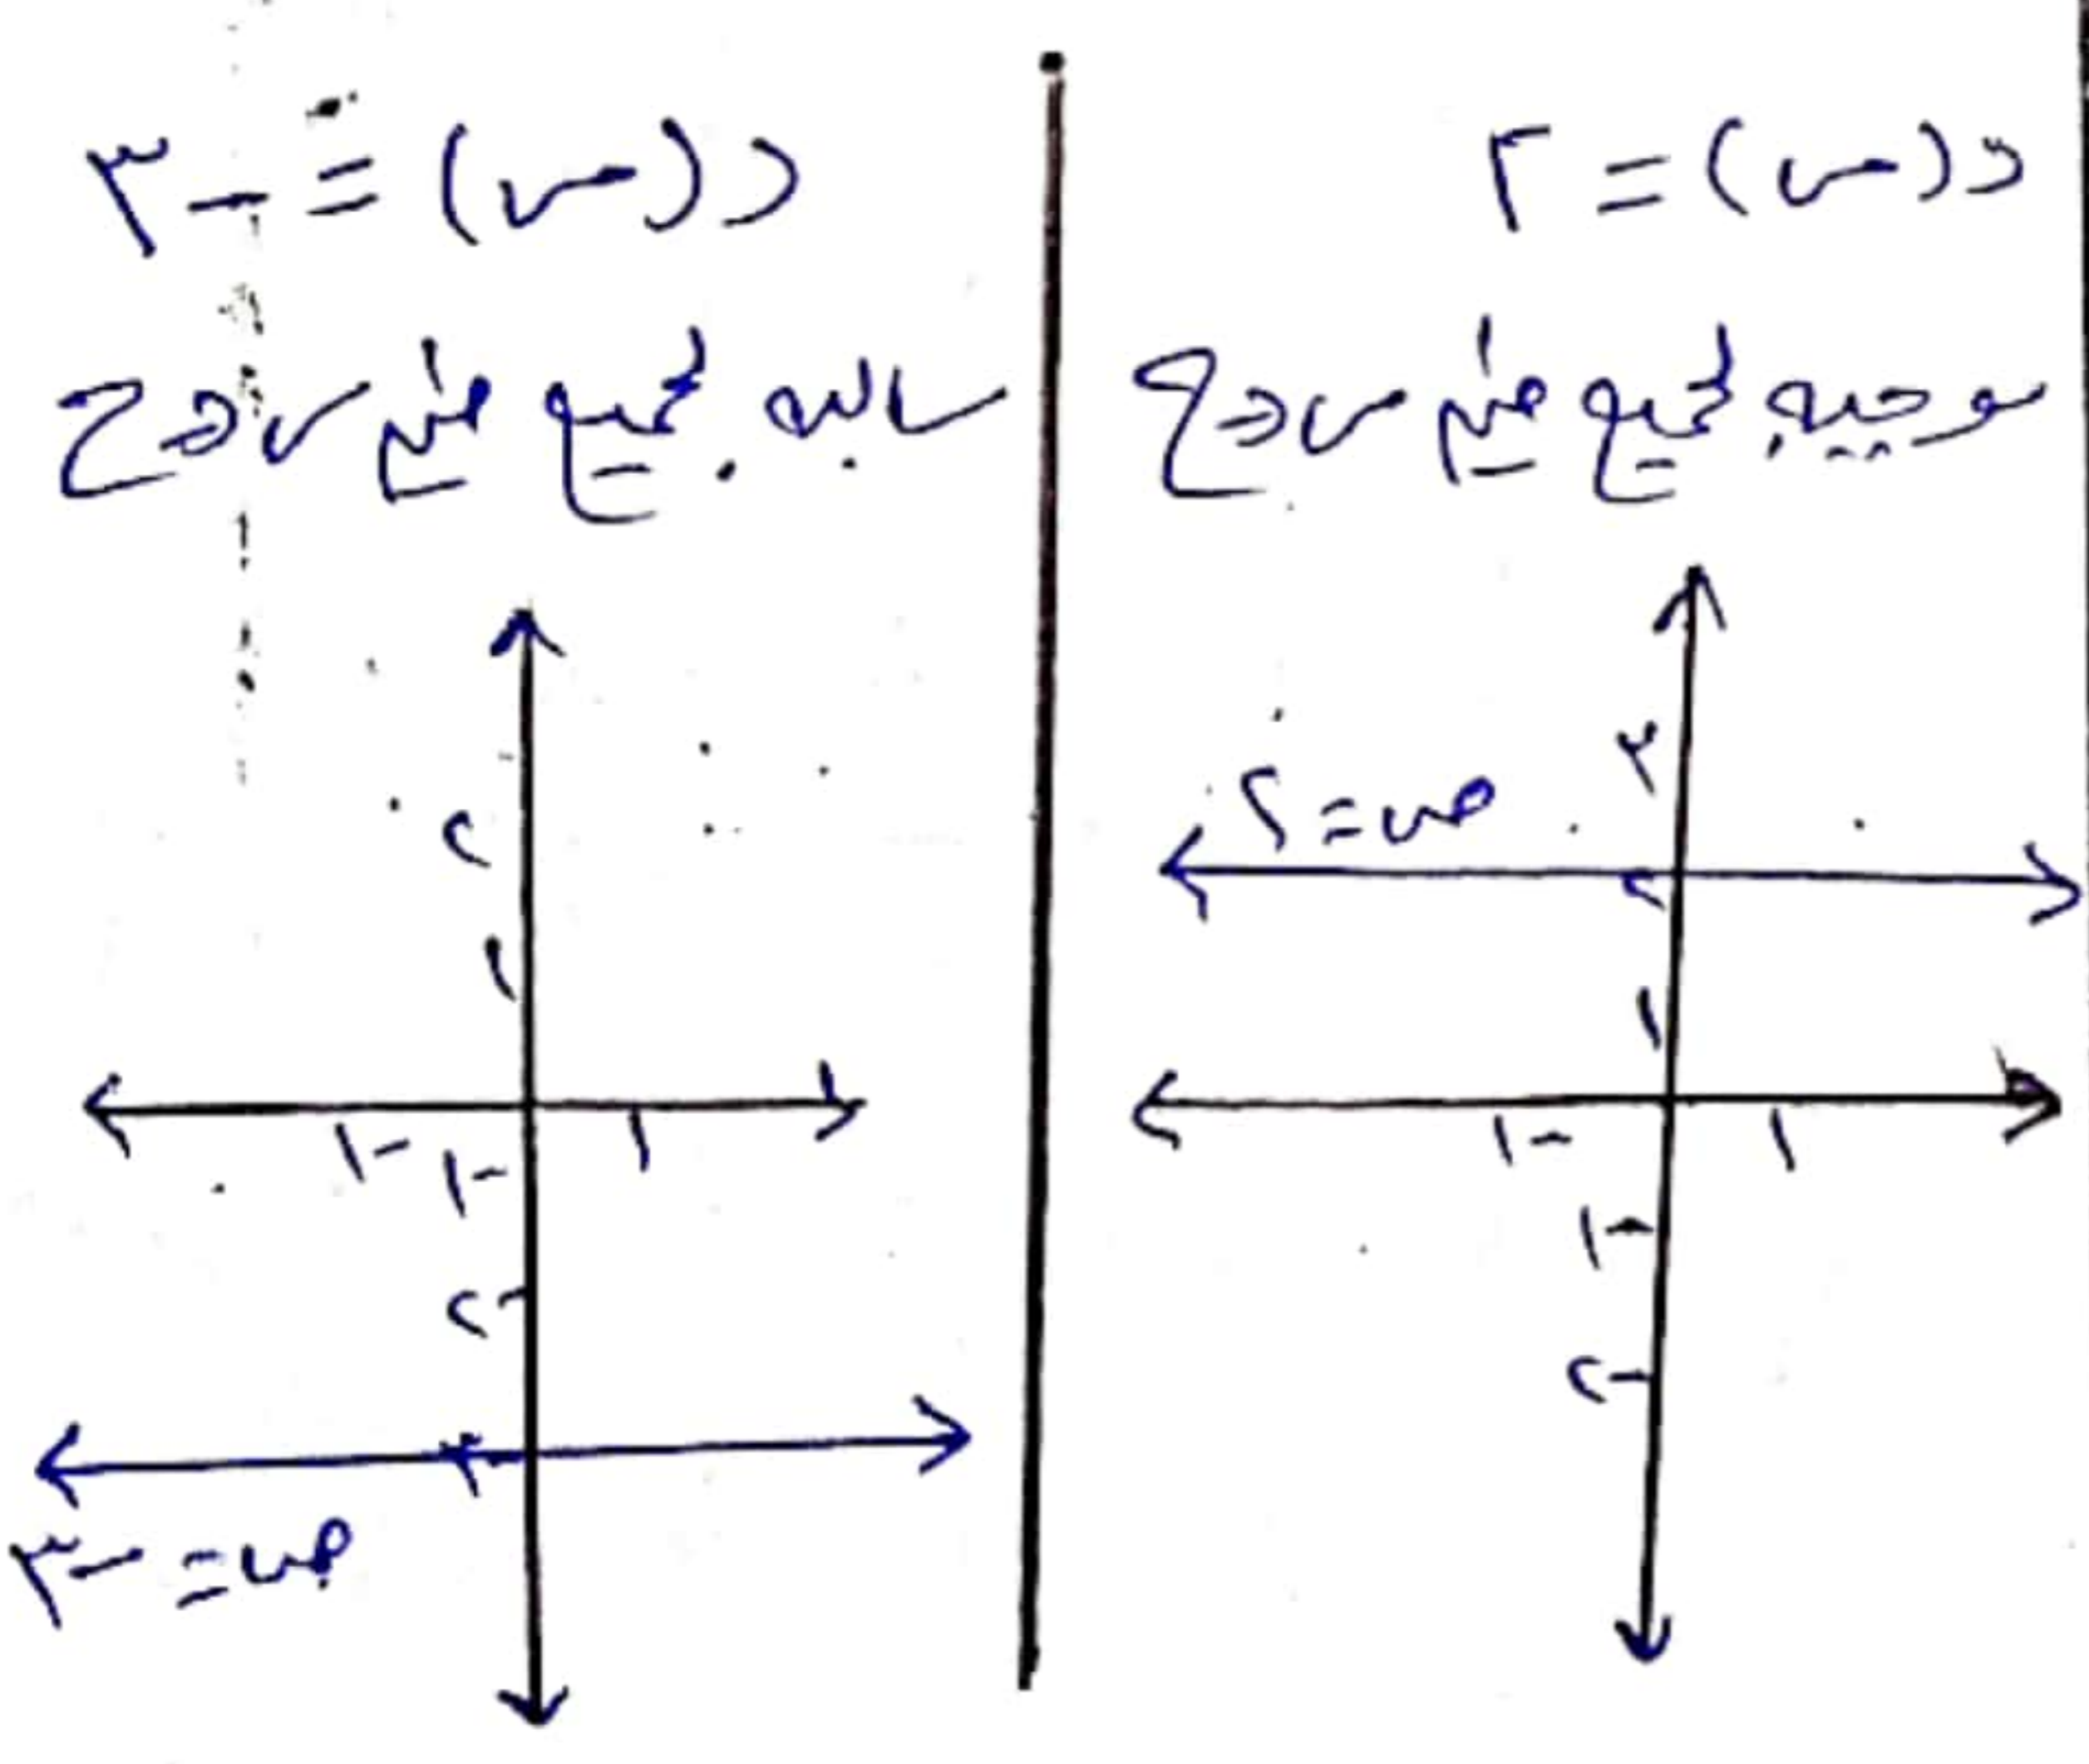 د(س) = ٢
موجبه لجميع قيم س ∈ ح
٣
ص = ٢
٢
١
-١ ١
-١
-٢
د(س) = -٣
سالبه لجميع قيم س ∈ ح
٢
١
-١ ١
-١
-٢
-٣
ص = -٣